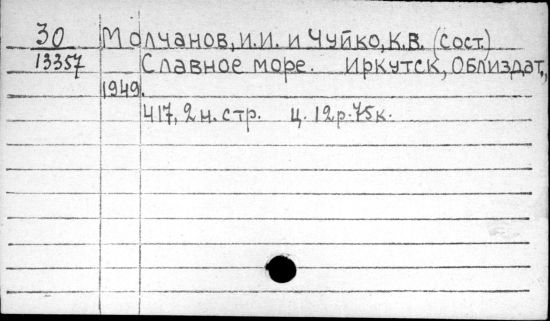 30 Молчанов, И.И. и Чуйко, К.В. (сост.)
13357 Славное море. Иркутск, Облиздат,
1949.
417, 2 н. стр. ц. 12р. 75к.